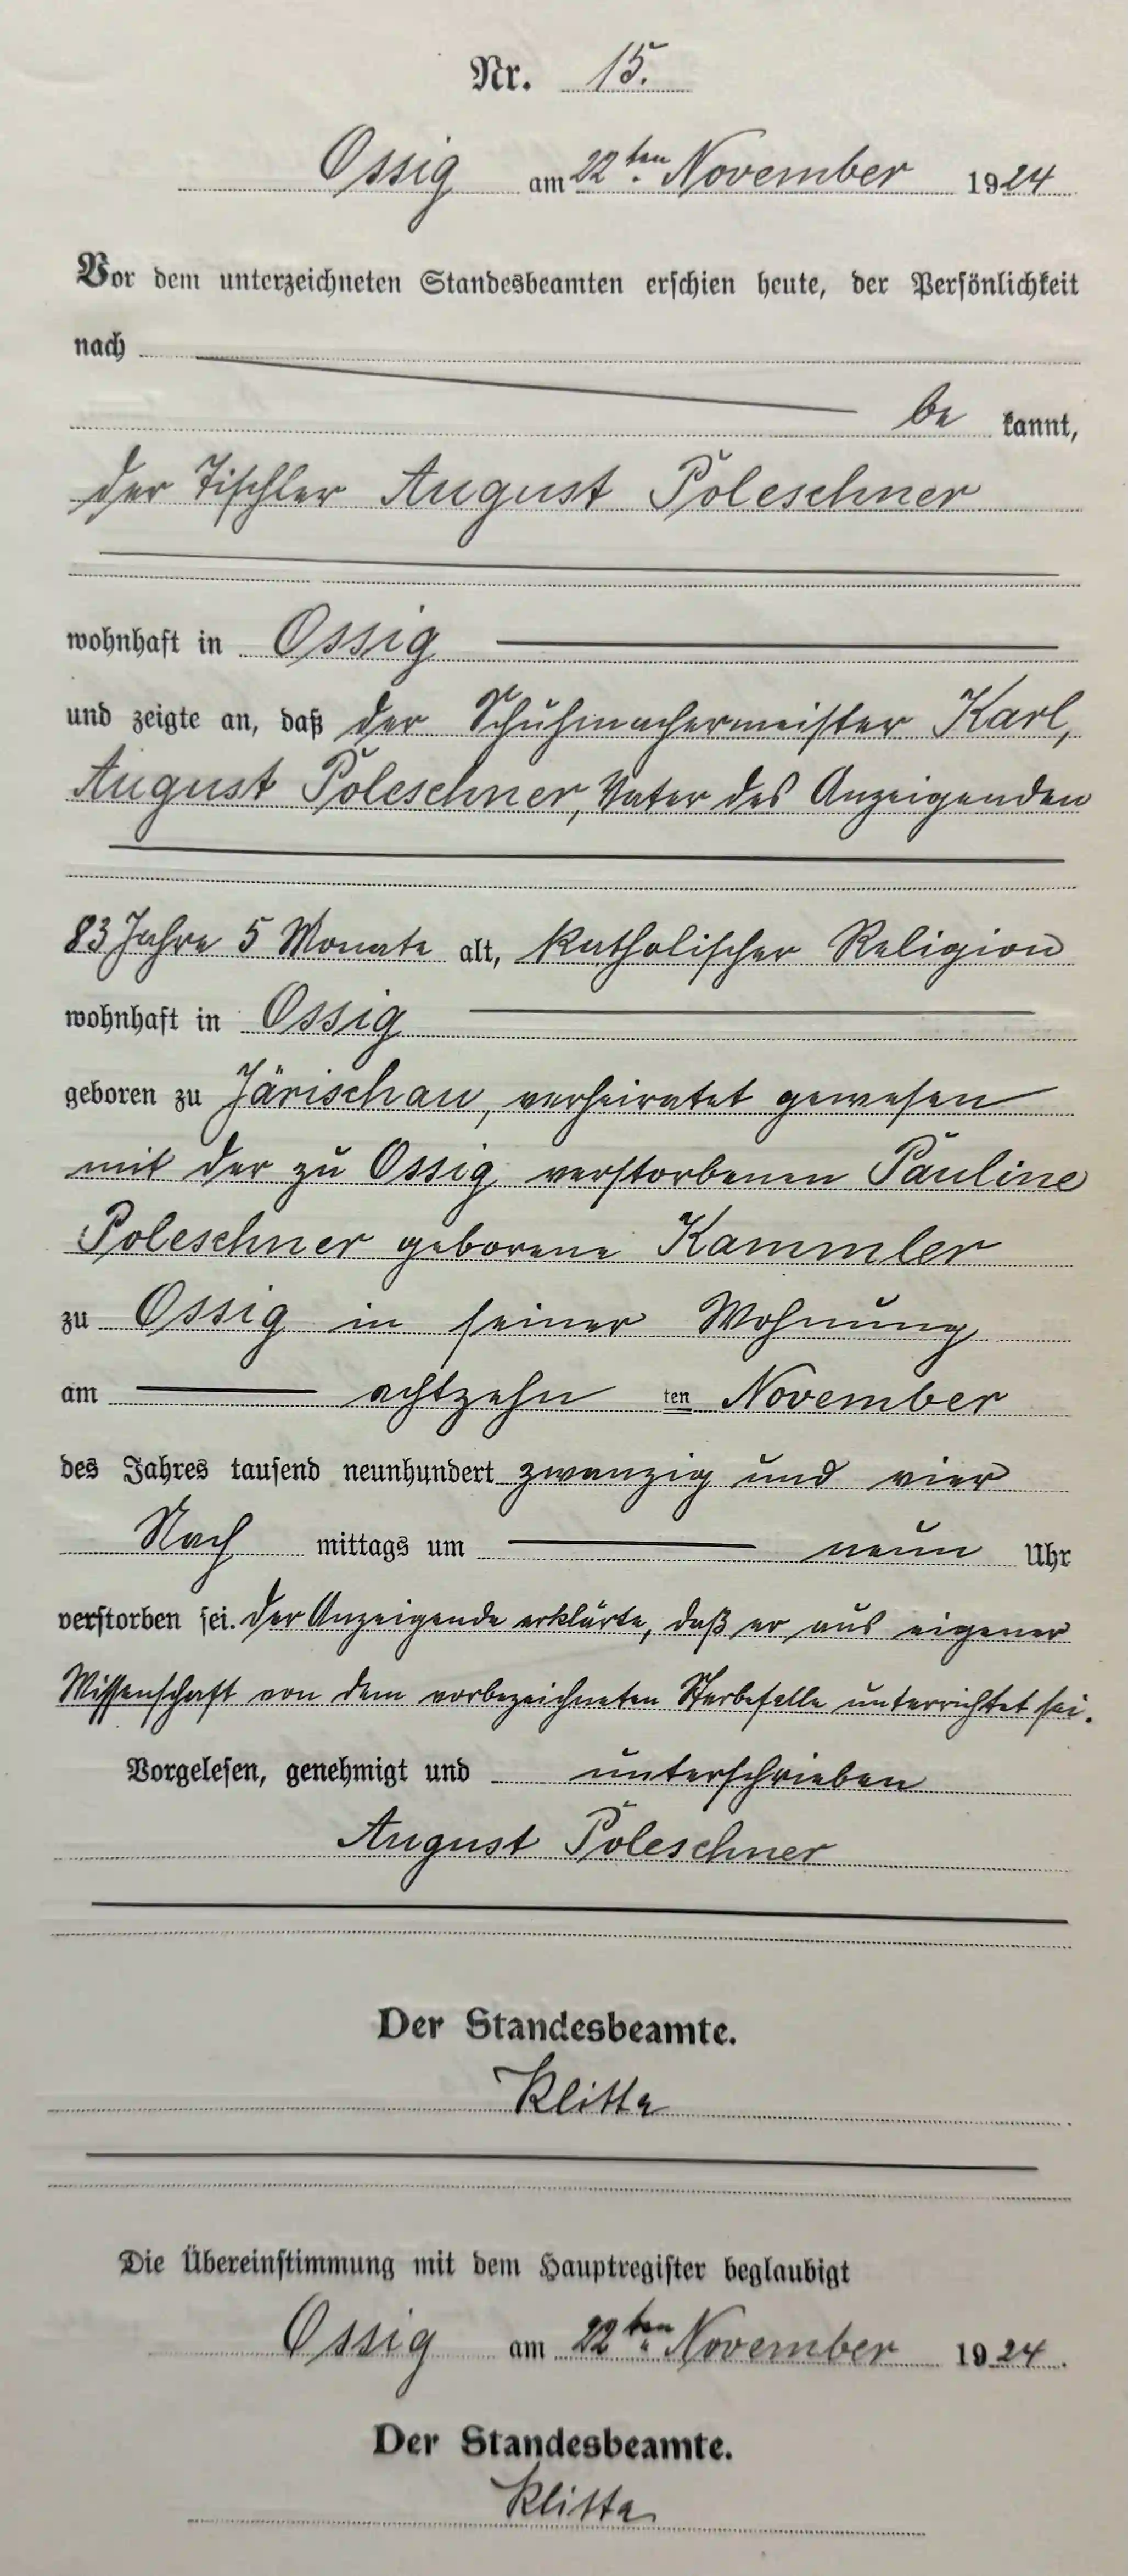 Nr. 15.
Ossig am 22ten November 1924
Vor dem unterzeichneten Standesbeamten erschien heute, der Persönlichkeit
nach
be kannt,
der Tischler August Poleschner
wohnhaft in Ossig
und zeigte an, daß der Schuhmachermeister Karl,
August Poleschner, Vater des Anzeigenden
83 Jahre 5 Monate alt, katholischer Religion
wohnhaft in Ossig
geboren zu Järischau, verheiratet gewesen
mit der zu Ossig verstorbenen Pauline
Poleschner geborene Kammler
zu Ossig in seiner Wohnung
am achtzehn ten November
des Jahres tausend neunhundert zwanzig und vier
Nach mittags um neun Uhr
verstorben sei. Der Anzeigende erklärte, daß er aus eigener
Wissenschaft von dem vorbezeichneten Sterbefalle unterrichtet sei.
Vorgelesen, genehmigt und unterschrieben
August Poleschner
Der Standesbeamte.
Klitta
Die Übereinstimmung mit dem Hauptregister beglaubigt
Ossig am 22ten November 1924.
Der Standesbeamte.
Klitta